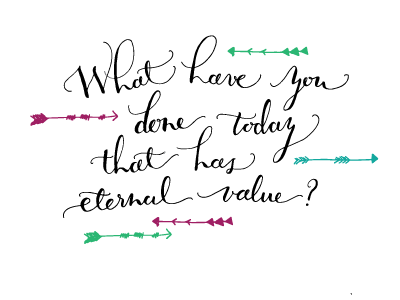 What have you
done today
that has
eternal value?